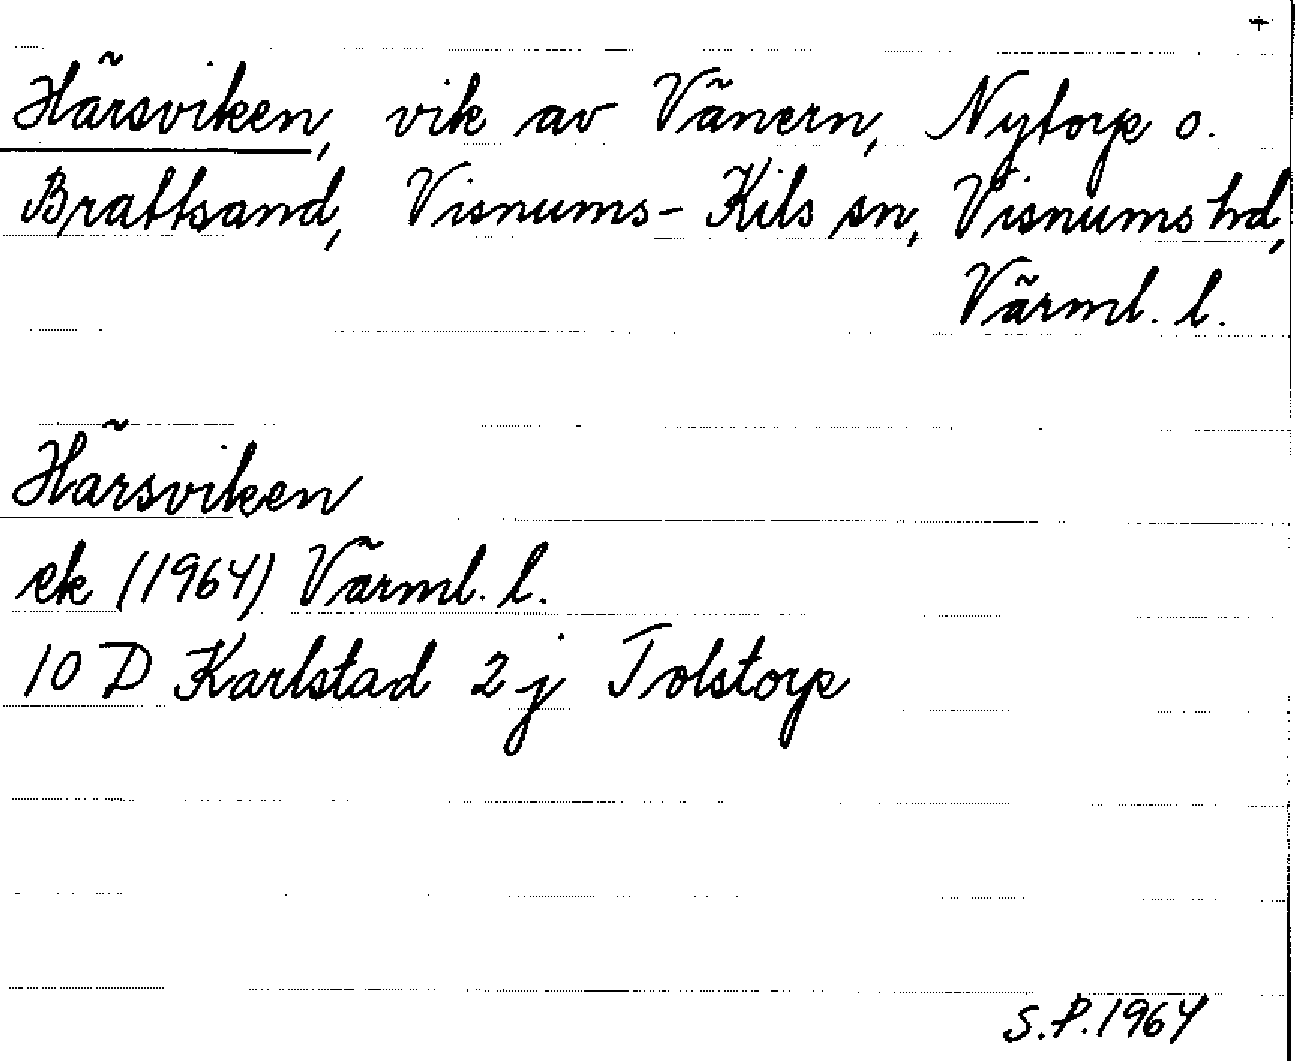 +
Härsviken, vik av Vänern, Nytorp o.
Brattsand, Visnums-Kils sn, Visnums hd,
Värml. l.
Härsviken
ek (1964) Värml. l.
10 D Karlstad 2 j Tolstorp
S.P. 1964